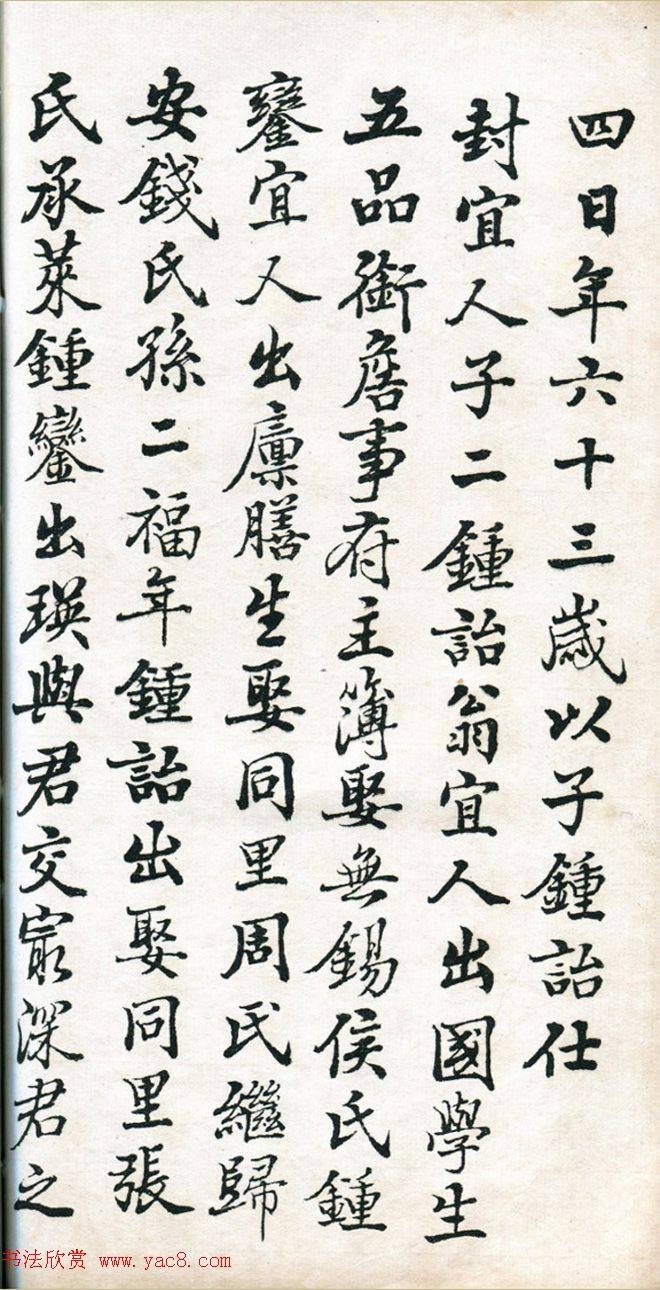 四日年六十三歲以子鍾詒仕
封宜人子二鍾詒翁宜人出國學生
五品銜詹事府主簿娶無錫侯氏鍾
鑾宜人出廩膳生娶同里周氏繼歸
安錢氏孫二福年鍾詒出娶同里張
氏承萊鍾鑾出瑛與君交最深君之
书法欣赏 www.yac8.com